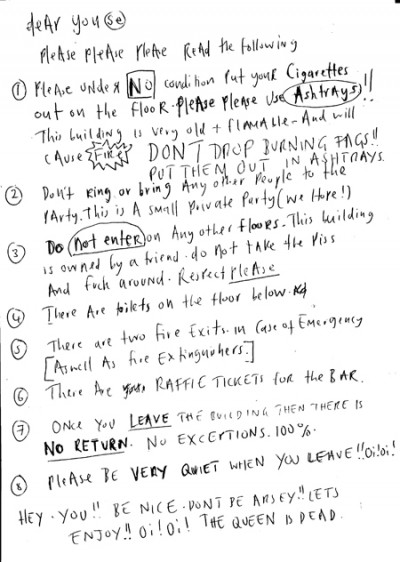 deAr you (se)
PleAse PleAse PleAse ReAd the following
① PleAse under NO condition Put your Cigarettes
out on the flooR. PleAse please Use Ashtrays!!
This building is very old + flamAble - And will
cAuse FIRE DON'T DROP BURNING FAGS!!
PUT THEM OUT IN ASHTRAYS.
② Don't ring or bring Any other PeoPle to the
PArty. This is A smAll PrivAte Party (we HoPe!)
③ Do not enter on Any other floors. This building
is owned by a friend. do not tAke the Piss
And fuck around. Respect PleAse
④ There Are toilets on the floor below.
⑤ There are two fire Exits. in Case of Emergency
[Aswell As fire Extinguishers.]
⑥ There Are RAFFIC TICKETS foR the BAR.
⑦ ONCE YOU LEAVE THE BUILDING THEN THERE IS
NO RETURN. NO EXCEPTIONS. 100%.
⑧ PLEASE BE VERY QUIET WHEN YOU LEAVE!! Oi! Oi!
HEY. YOU!! BE NICE. DONT BE ARSEY!! LETS
ENJOY!! Oi! Oi! THE QUEEN IS DEAD.